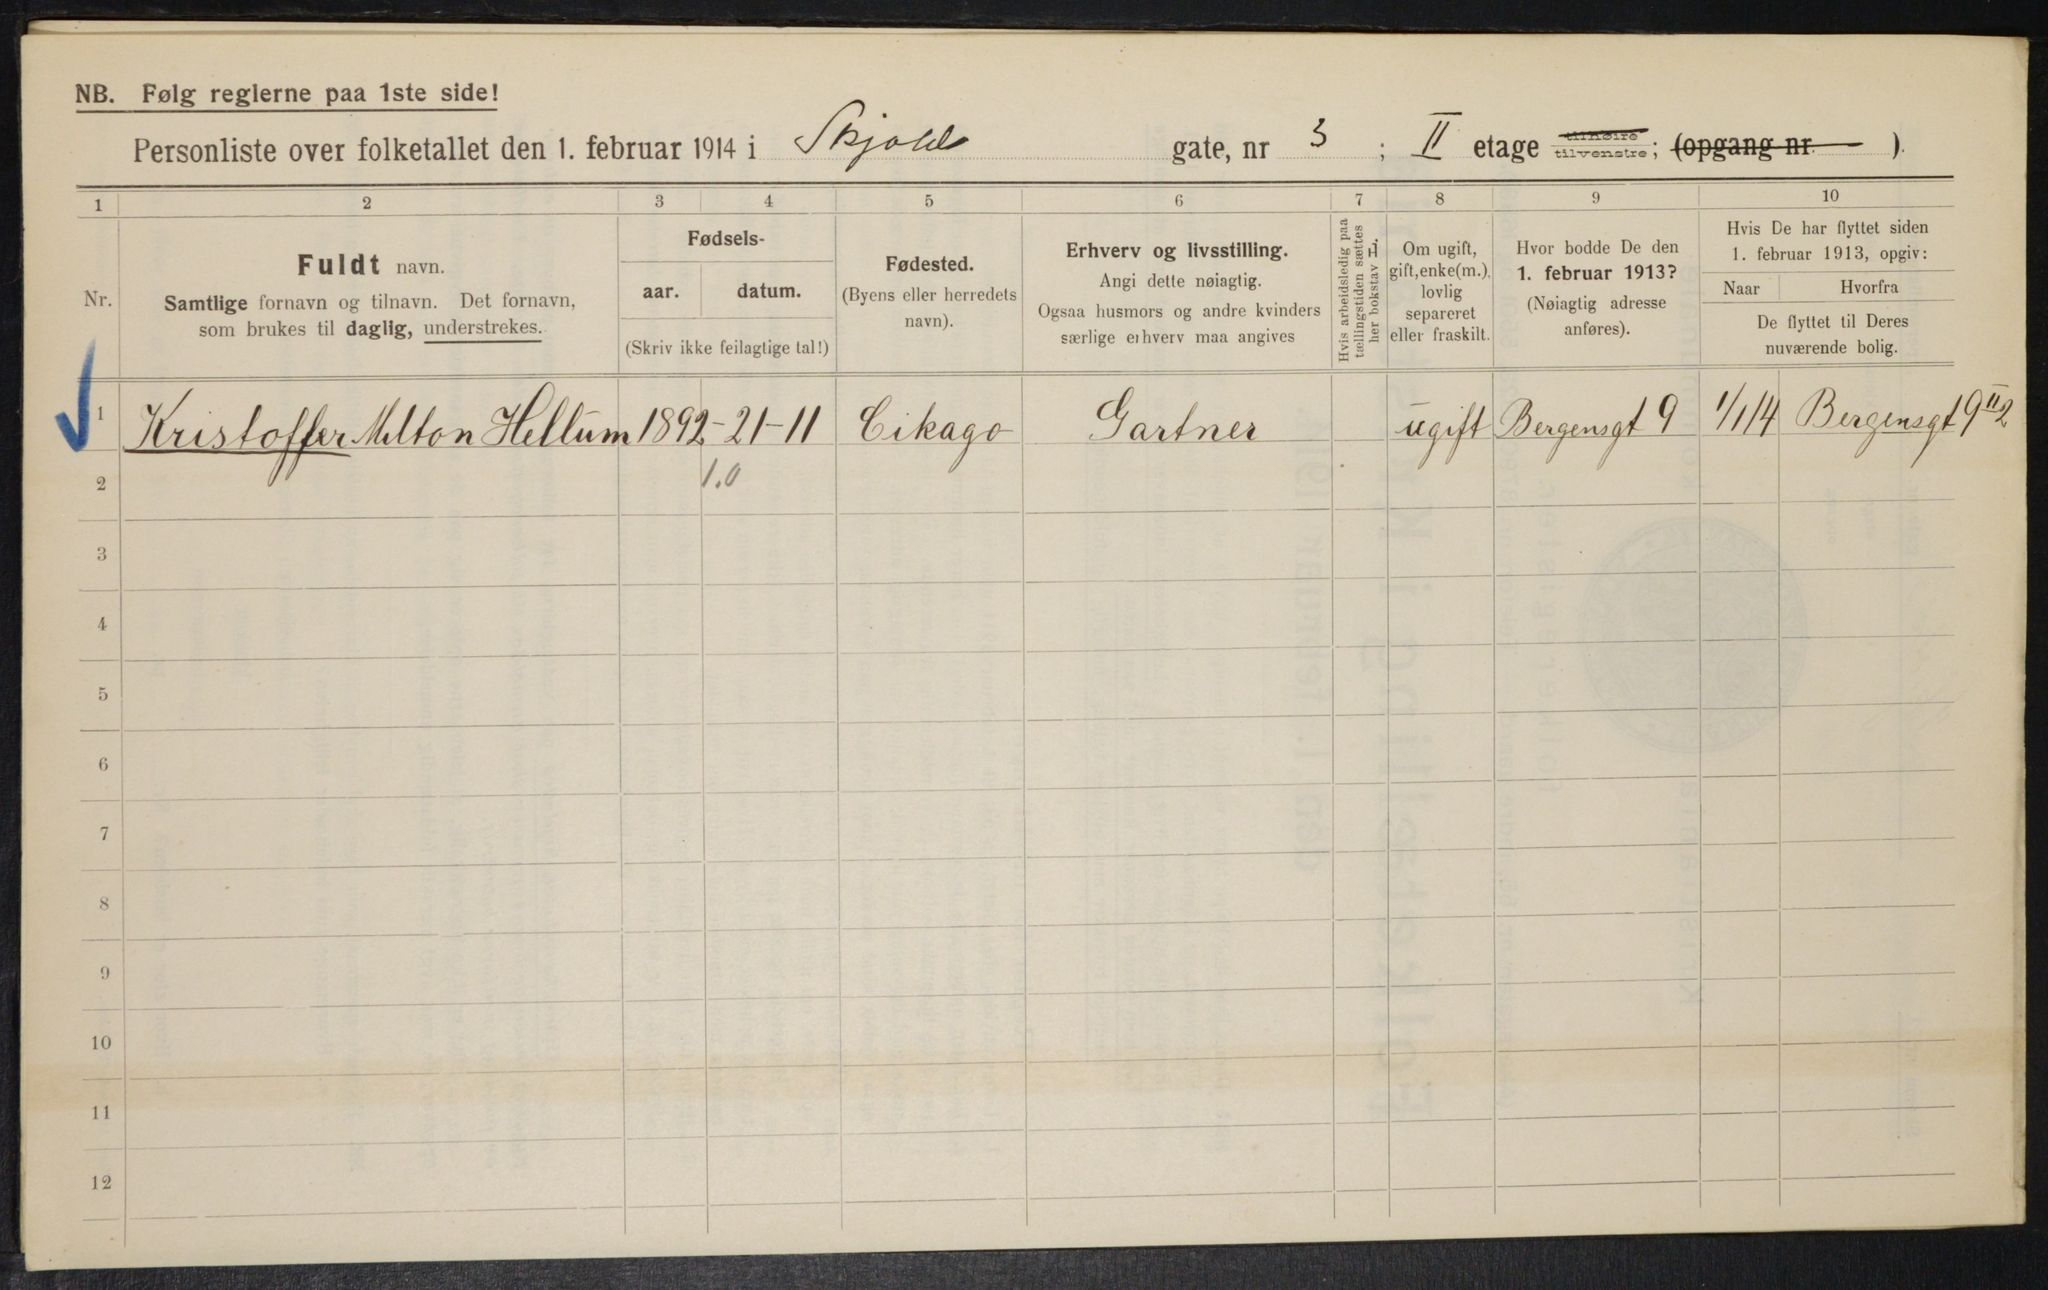 NB. Følg reglerne paa 1ste side!
Personliste over folketallet den 1. februar 1914 i Skjolds gate, nr 3 ; II etage tilhøire tilvenstre; (opgang nr. ).
1 2 3 4 5 6 7 8 9 10
Nr.
Fuldt navn.
Samtlige fornavn og tilnavn. Det fornavn,
som brukes til daglig, understrekes.
Fødsels-
aar. datum.
(Skriv ikke feilagtige tal!)
Fødested.
(Byens eller herredets
navn).
Erhverv og livsstilling.
Angi dette nøiagtig.
Ogsaa husmors og andre kvinders
særlige erhverv maa angives
Hvis arbeidsledig paa
tællingstiden sættes
her bokstav L.
Om ugift,
gift, enke(m.),
lovlig
separeret
eller fraskilt.
Hvor bodde De den
1. februar 1913?
(Nøiagtig adresse
anføres).
Hvis De har flyttet siden
1. februar 1913, opgiv:
Naar Hvorfra
De flyttet til Deres
nuværende bolig.
1 Kristoffer Milton Hellum 1892-21-11 Cikago Gartner ugift Bergensgt 9 1/1 14 Bergensgt 9 II 2
2 1.0
3
4
5
6
7
8
9
10
11
12